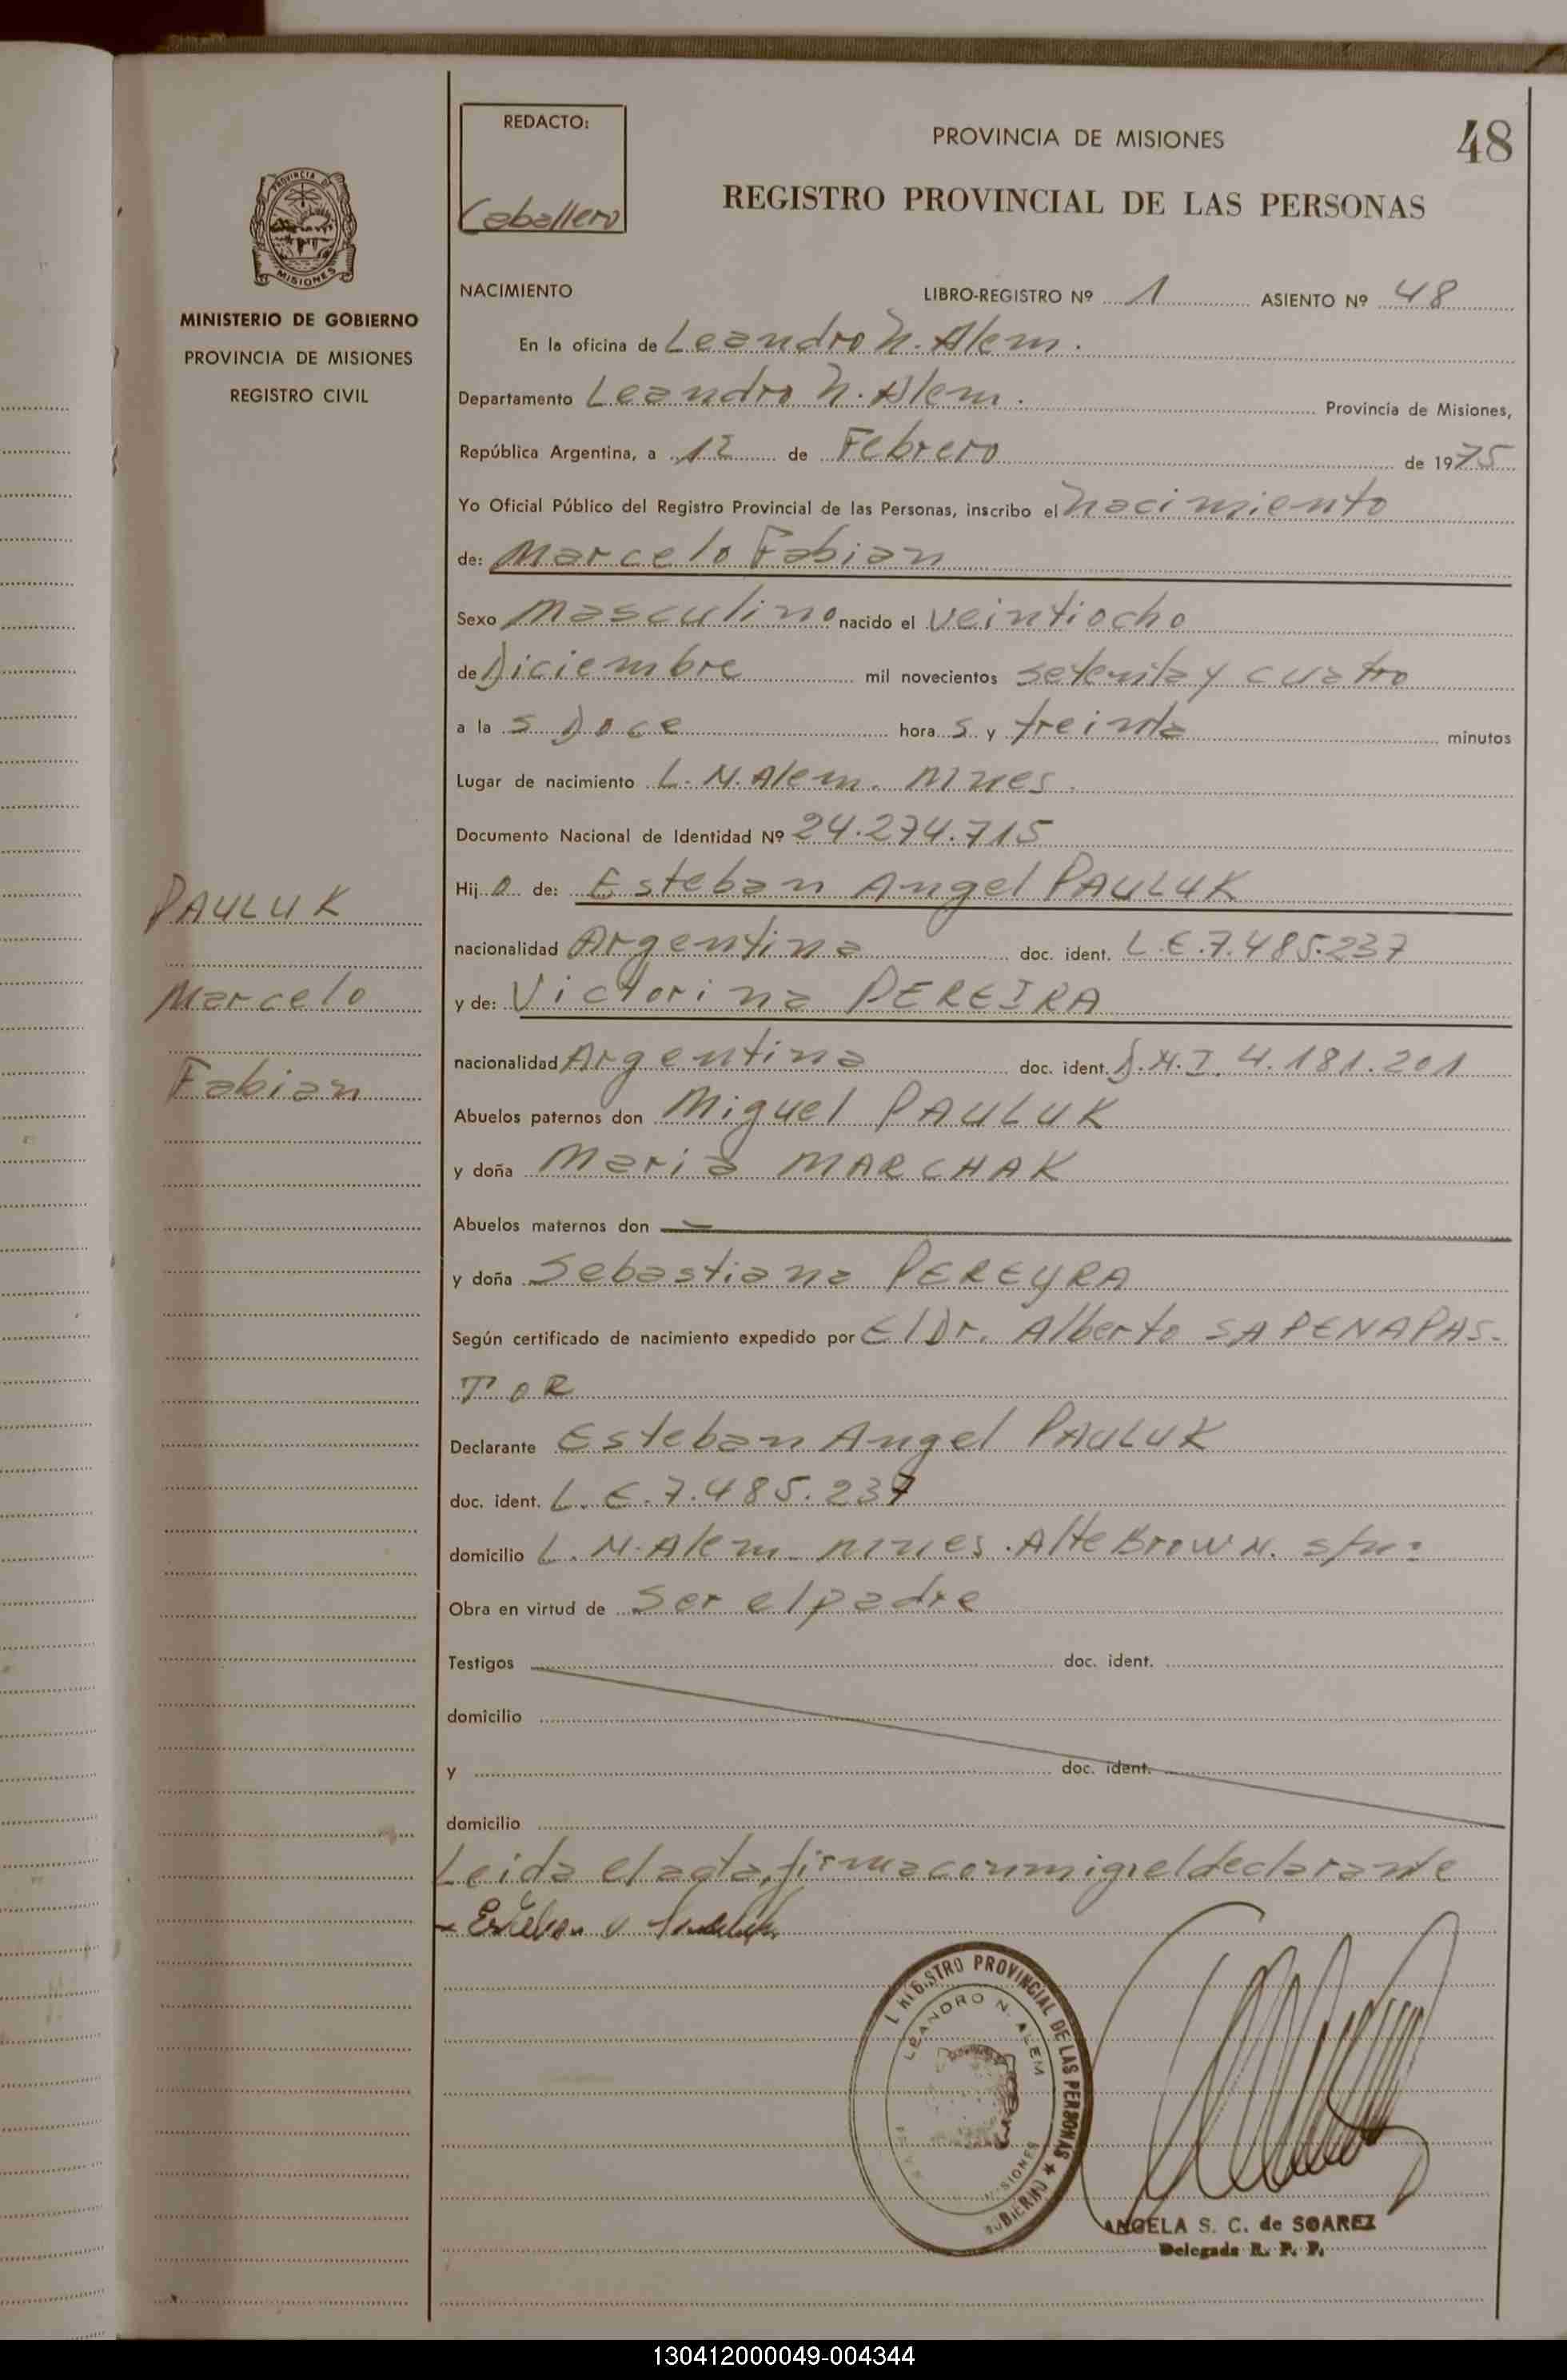 REDACTO:
Caballero
PROVINCIA DE MISIONES
48
REGISTRO PROVINCIAL DE LAS PERSONAS
PROVINCIA DE
MISIONES
MINISTERIO DE GOBIERNO
PROVINCIA DE MISIONES
REGISTRO CIVIL
NACIMIENTO LIBRO-REGISTRO Nº 1 ASIENTO Nº 48
En la oficina de Leandro N. Alem.
Departamento Leandro N. Alem. Provincia de Misiones,
República Argentina, a 12 de Febrero de 1975
Yo Oficial Público del Registro Provincial de las Personas, inscribo el nacimiento
de: Marcelo Fabian
Sexo Masculino nacido el veintiocho
de Diciembre mil novecientos setenta y cuatro
a la s Doce hora s y treinta minutos
Lugar de nacimiento L. N. Alem. Mnes.
Documento Nacional de Identidad Nº 24.274.715
PAULUK
Marcelo
Fabian
Hij o de: Esteban Angel PAULUK
nacionalidad Argentina doc. ident. L.E.7.485.237
y de: Victorina PEREIRA
nacionalidad Argentina doc. ident. D.N.I. 4.181.201
Abuelos paternos don Miguel PAULUK
y doña Maria MARCHAK
Abuelos maternos don
y doña Sebastiana PEREYRA
Según certificado de nacimiento expedido por El Dr. Alberto SAPENAPAS-
TOR
Declarante Esteban Angel PAULUK
doc. ident. L.E.7.485.237
domicilio L. N. Alem. Mnes. Alte Brown. s/nº
Obra en virtud de ser el padre
Testigos doc. ident.
domicilio
y doc. ident.
domicilio
Leida el acta, firma conmigo el declarante
Esteban
REGISTRO PROVINCIAL DE LAS PERSONAS ★
LEANDRO N. ALEM
MISIONES
ANGELA S. C. de SOAREZ
Delegada R. P. P.
130412000049-004344